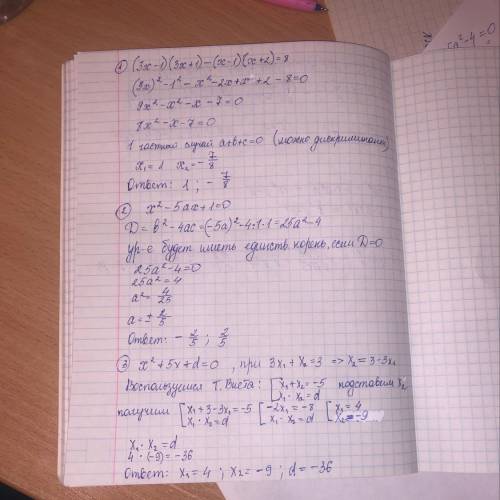 ① (3x-1)(3x+1)-(x-1)(x+2)=8
(3x)²-1²-x²-2x+x+2-8=0
9x²-x²-x-7=0
8x²-x-7=0
1 частный случай a+b+c=0 (можно дискриминант)
x₁=1 x₂=-7/8
Ответ: 1 ; -7/8
② x²-5ax+1=0
D=b²-4ac=(-5a)²-4·1·1=25a²-4
ур-е будет иметь единств. корень, если D=0
25a²-4=0
25a²=4
a²=4/25
a=±2/5
Ответ: -2/5 ; 2/5
③ x²+5x+d=0 , при 3x₁+x₂=3 => x₂=3-3x₁
Воспользуемся Т. Виета: [x₁+x₂=-5 подставим x₂
x₁·x₂=d
получим [x₁+3-3x₁=-5 [-2x₁=-8 [x₁=4
x₁·x₂=d x₁·x₂=d x₂=-9
x₁·x₂=d
4·(-9)=-36
Ответ: x₁=4 ; x₂=-9 ; d=-36
a²-4=0